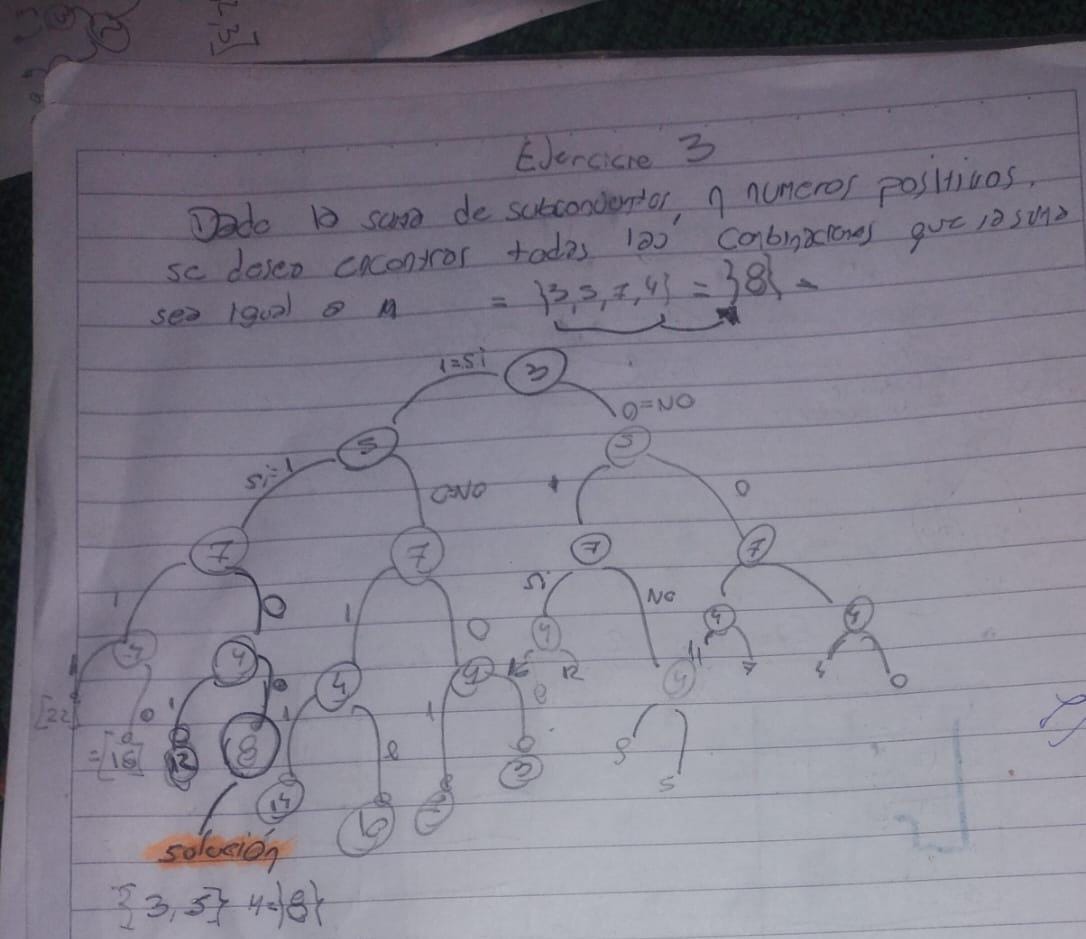 2,3]
Ejercicie 3
Dado la suma de subconjuntos, n numeros positivos,
se desea encontrar todas las combinaciones que la suma
sea igual a M = {3,5,7,4} = {8}
1=Si 3 0=NO
5 5
Si=1 0=NO 1 0
7 7 7 7
1 0 1 0 Si NO
4 4 4 4 4 4 4 4
[22] 0 1 0 1 0 1 0 12 11 7 4 0
=[15] 12 8 14 10 3 9 5
solución
{3,5} 4={8}